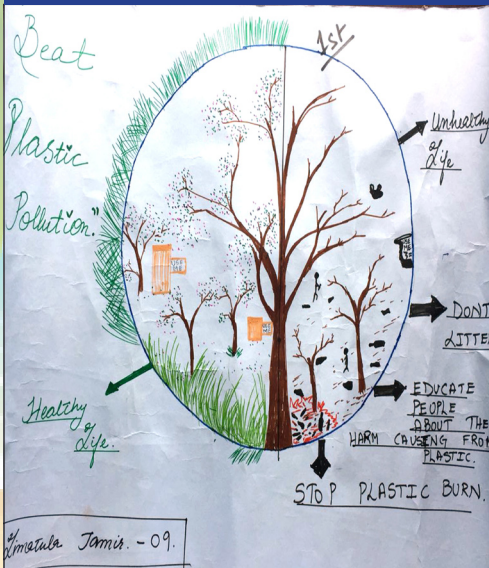 Beat
Plastic
Pollution."
1st
Unhealthy
of
Life
DONT
LITTE
EDUCATE
PEOPLE
ABOUT THE
HARM CAUSING FROM
PLASTIC.
STOP PLASTIC BURN.
Healthy
of
Life.
Limatula Jamir. - 09.